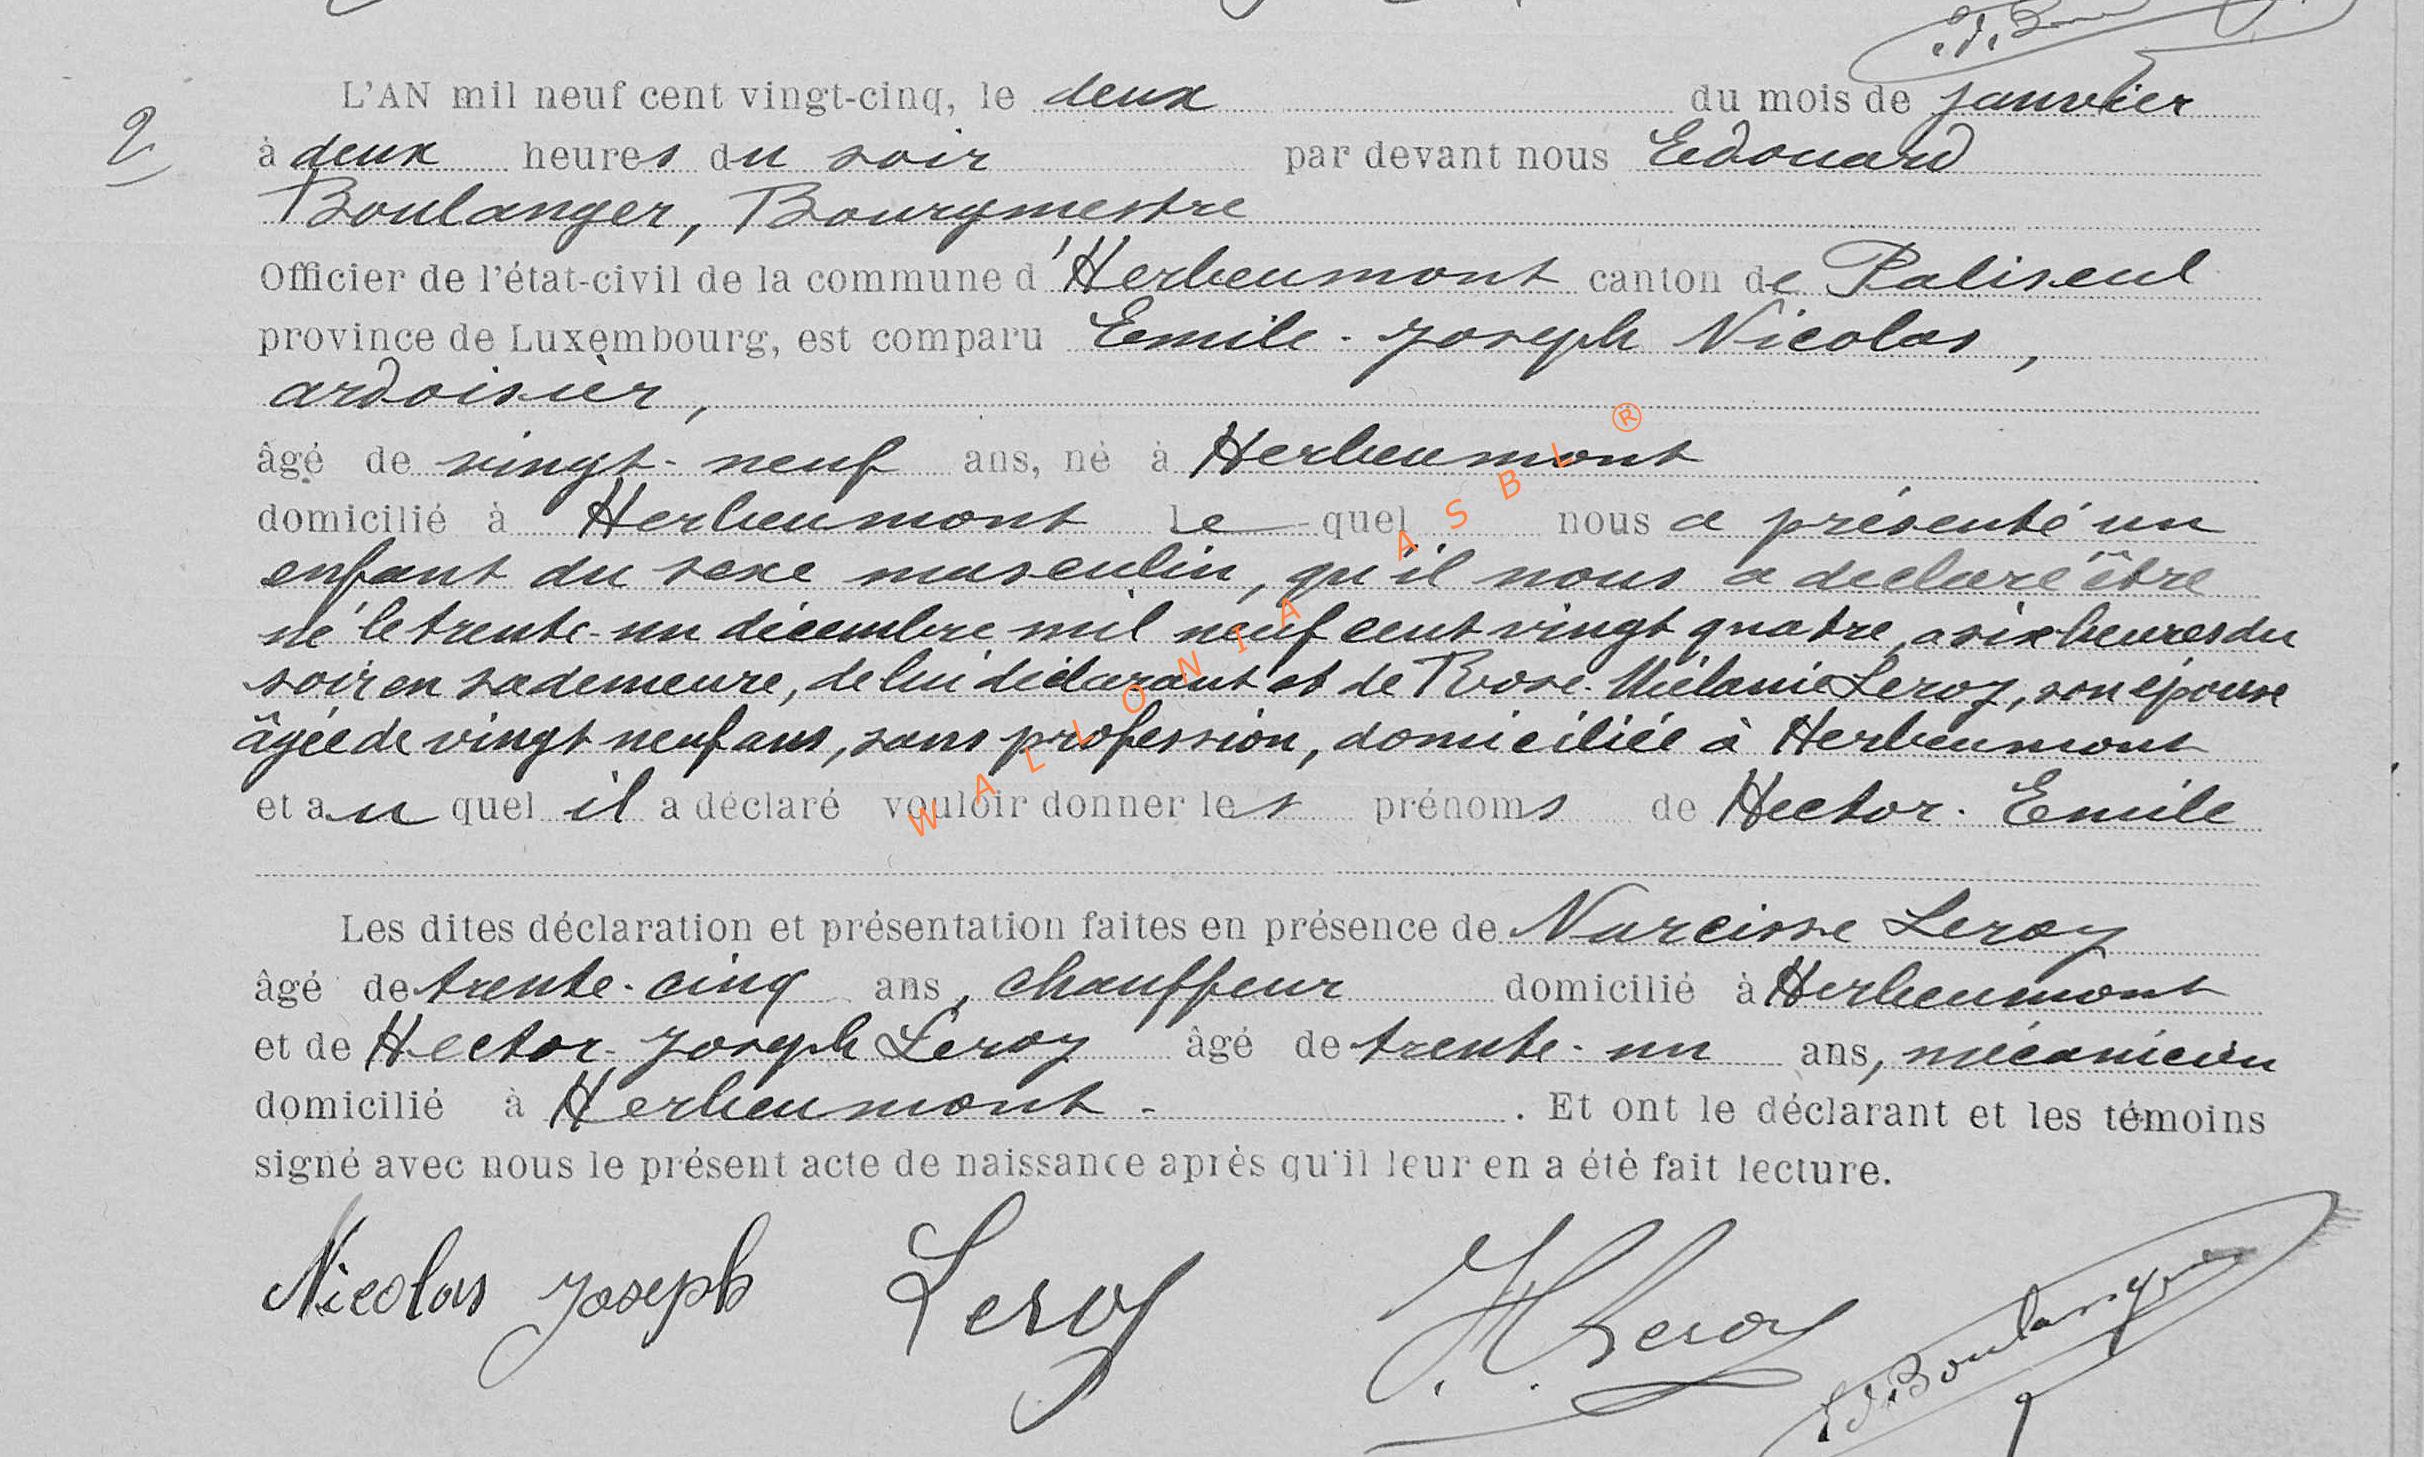 L'AN mil neuf cent vingt-cinq, le deux du mois de janvier
2
à deux heures du soir par devant nous Edouard
Boulanger, Bourgmestre
Officier de l'état-civil de la commune d'Herbeumont canton de Paliseul
province de Luxembourg, est comparu Emile-Joseph Nicolas,
ardoisier,
âgé de vingt-neuf ans, né à Herbeumont
domicilié à Herbeumont lequel nous a présenté un
enfant du sexe masculin, qu'il nous a déclaré être
né le trente-un décembre mil neuf cent vingt quatre, a six heures du
soir en sa demeure, de lui déclarant et de Rose-Mélanie Leroy, son épouse
âgée de vingt neuf ans, sans profession, domiciliée à Herbeumont
et au quel il a déclaré vouloir donner les prénoms de Hector-Emile
Les dites déclaration et présentation faites en présence de Narcisse Leroy
âgé de trente-cinq ans, chauffeur domicilié à Herbeumont
et de Hector-Joseph Leroy âgé de trente-un ans, mécanicien
domicilié à Herbeumont-. Et ont le déclarant et les témoins
signé avec nous le présent acte de naissance après qu'il leur en a été fait lecture.
Nicolas Joseph Leroy H. Leroy Ed. Boulanger
WALLONIA ASBL ®